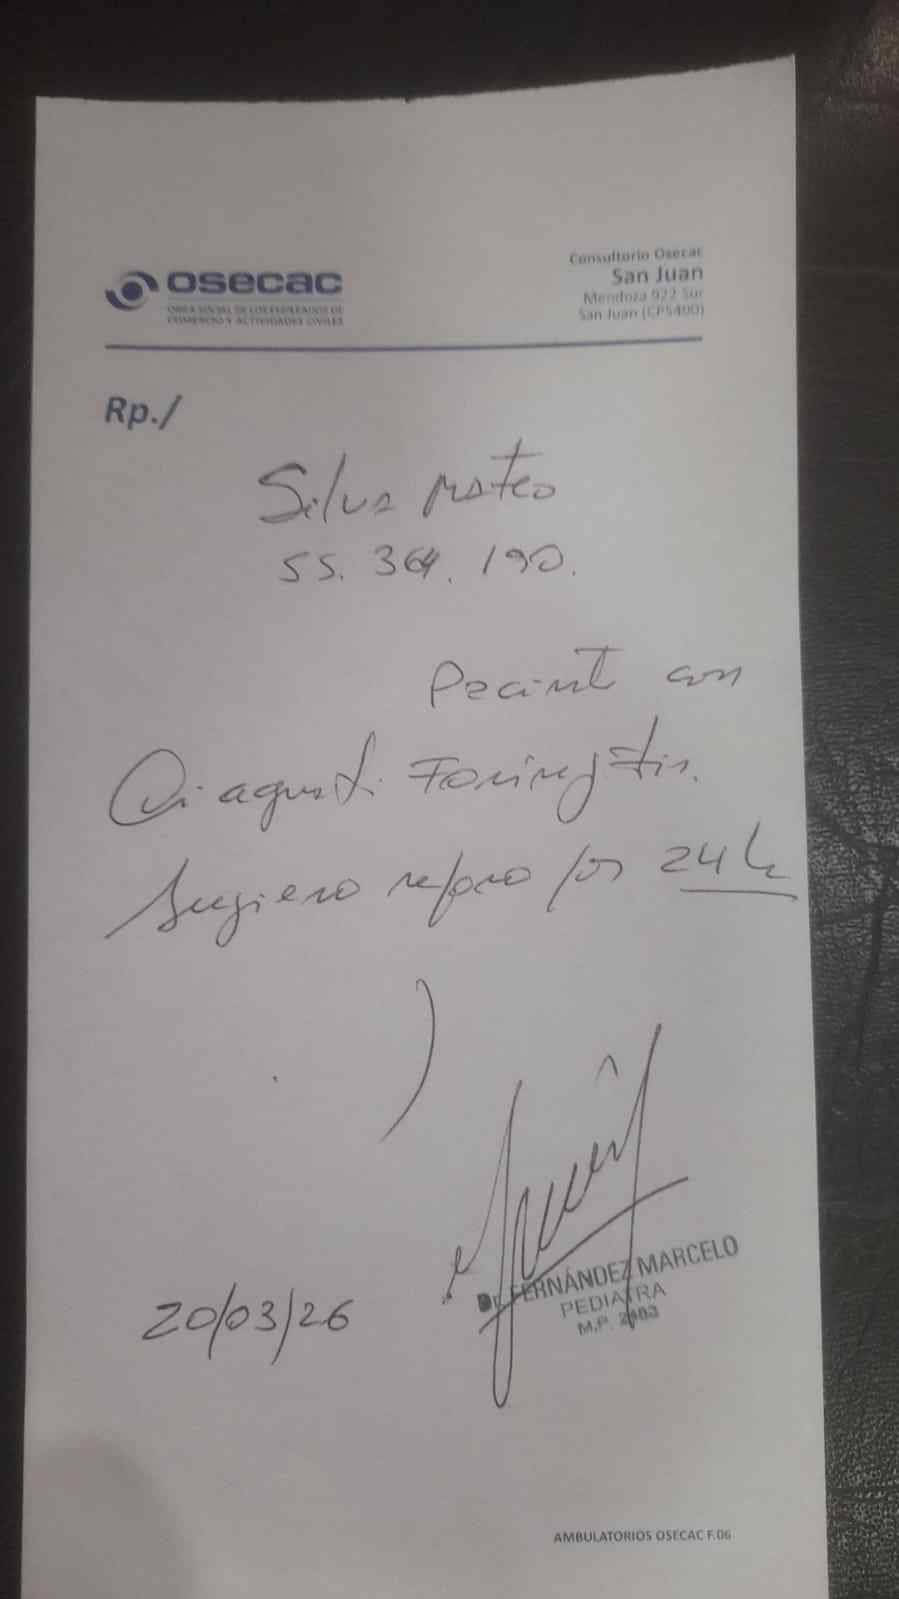 osecac
OBRA SOCIAL DE LOS EMPLEADOS DE
COMERCIO Y ACTIVIDADES CIVILES
Consultorio Osecac
San Juan
Mendoza 922 Sur
San Juan (CP5400)
Rp./
Silva Mateo
55. 364. 190.
Paciente con
Faringitis.
Sugiero reposo por 24 h
20/03/26
Dr. FERNÁNDEZ MARCELO
PEDIATRA
M.P.
AMBULATORIOS OSECAC F.06